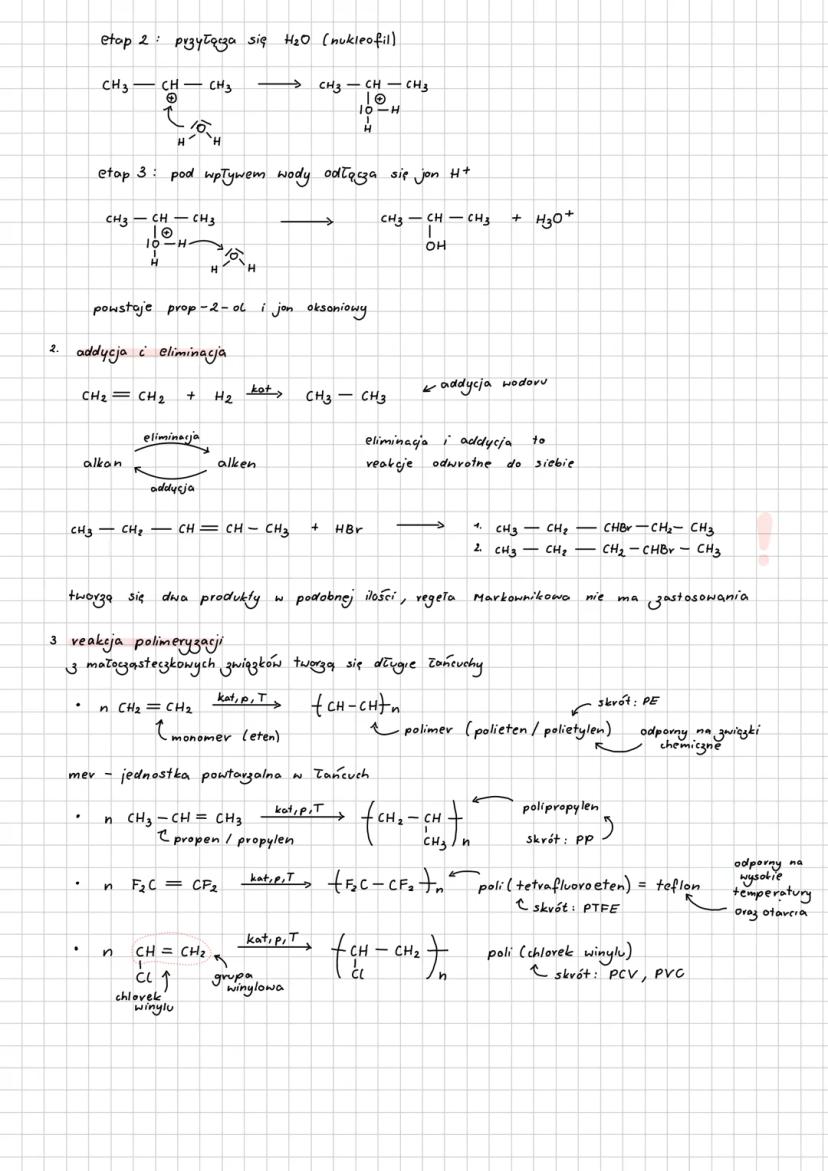 etap 2: przyłącza się H2O (nukleofil)
CH3 — CH — CH3 ⟶ CH3 — CH — CH3
⊕ | ⊕
IO — H
O H
H H
etap 3: pod wpływem wody odłącza się jon H+
CH3 — CH — CH3 ⟶ CH3 — CH — CH3 + H3O+
| ⊕ |
IO — H O OH
H H H
powstaje prop-2-ol i jon oksoniowy
2. addycja i eliminacja
CH2 = CH2 + H2 kat→ CH3 — CH3 ↙ addycja wodoru
eliminacja
alkan alken
addycja
eliminacja i addycja to
reakcje odwrotne do siebie
CH3 — CH2 — CH = CH — CH3 + HBr ⟶ 1. CH3 — CH2 — CHBr — CH2 — CH3 !
2. CH3 — CH2 — CH2 — CHBr — CH3
tworzą się dwa produkty w podobnej ilości, reguła Markownikowa nie ma zastosowania
3 reakcja polimeryzacji
z małocząsteczkowych związków tworzą się długie łańcuchy
• n CH2 = CH2 kat,p,T→ -(CH-CH)-n skrót: PE
monomer (eten) polimer (polieten / polietylen) odporny na związki
chemiczne
mer - jednostka powtarzalna w łańcuch
• n CH3 - CH = CH3 kat,p,T→ -(CH2 - CH)-n polipropylen
propen / propylen CH3 skrót: PP
• n F2C = CF2 kat,p,T→ -(F2C - CF2)-n poli(tetrafluoroeten) = teflon
skrót: PTFE
odporny na
wysokie
temperatury
oraz otarcia
• n CH = CH2 kat,p,T→ -(CH - CH2)-n poli (chlorek winylu)
Cl Cl skrót: PCV, PVC
chlorek
winylu
grupa
winylowa